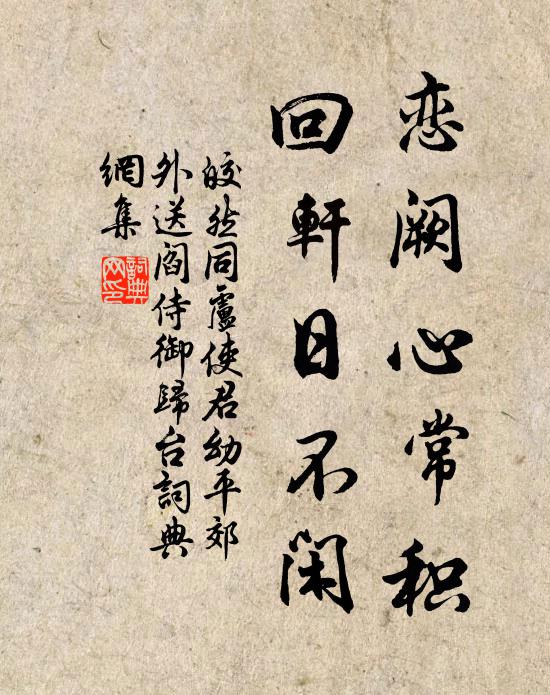 恋阙心常积
回軒日不闲
皎然同盧使君幼平郊
外送阎侍御歸台詞典
網集
詞典
网印